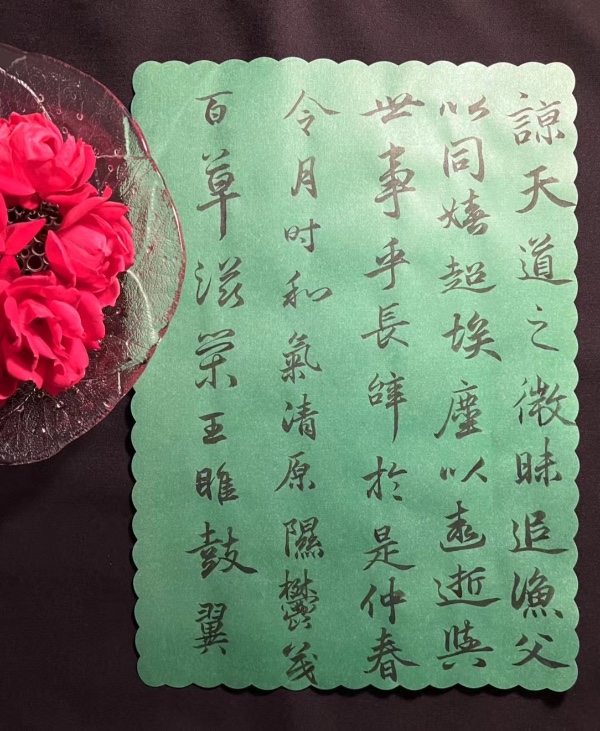 諒天道之微昧追漁父
以同嬉超埃塵以遠逝與
世事乎長辝於是仲春
令月时和氣清原隰鬱茂
百草滋荣王雎鼓翼